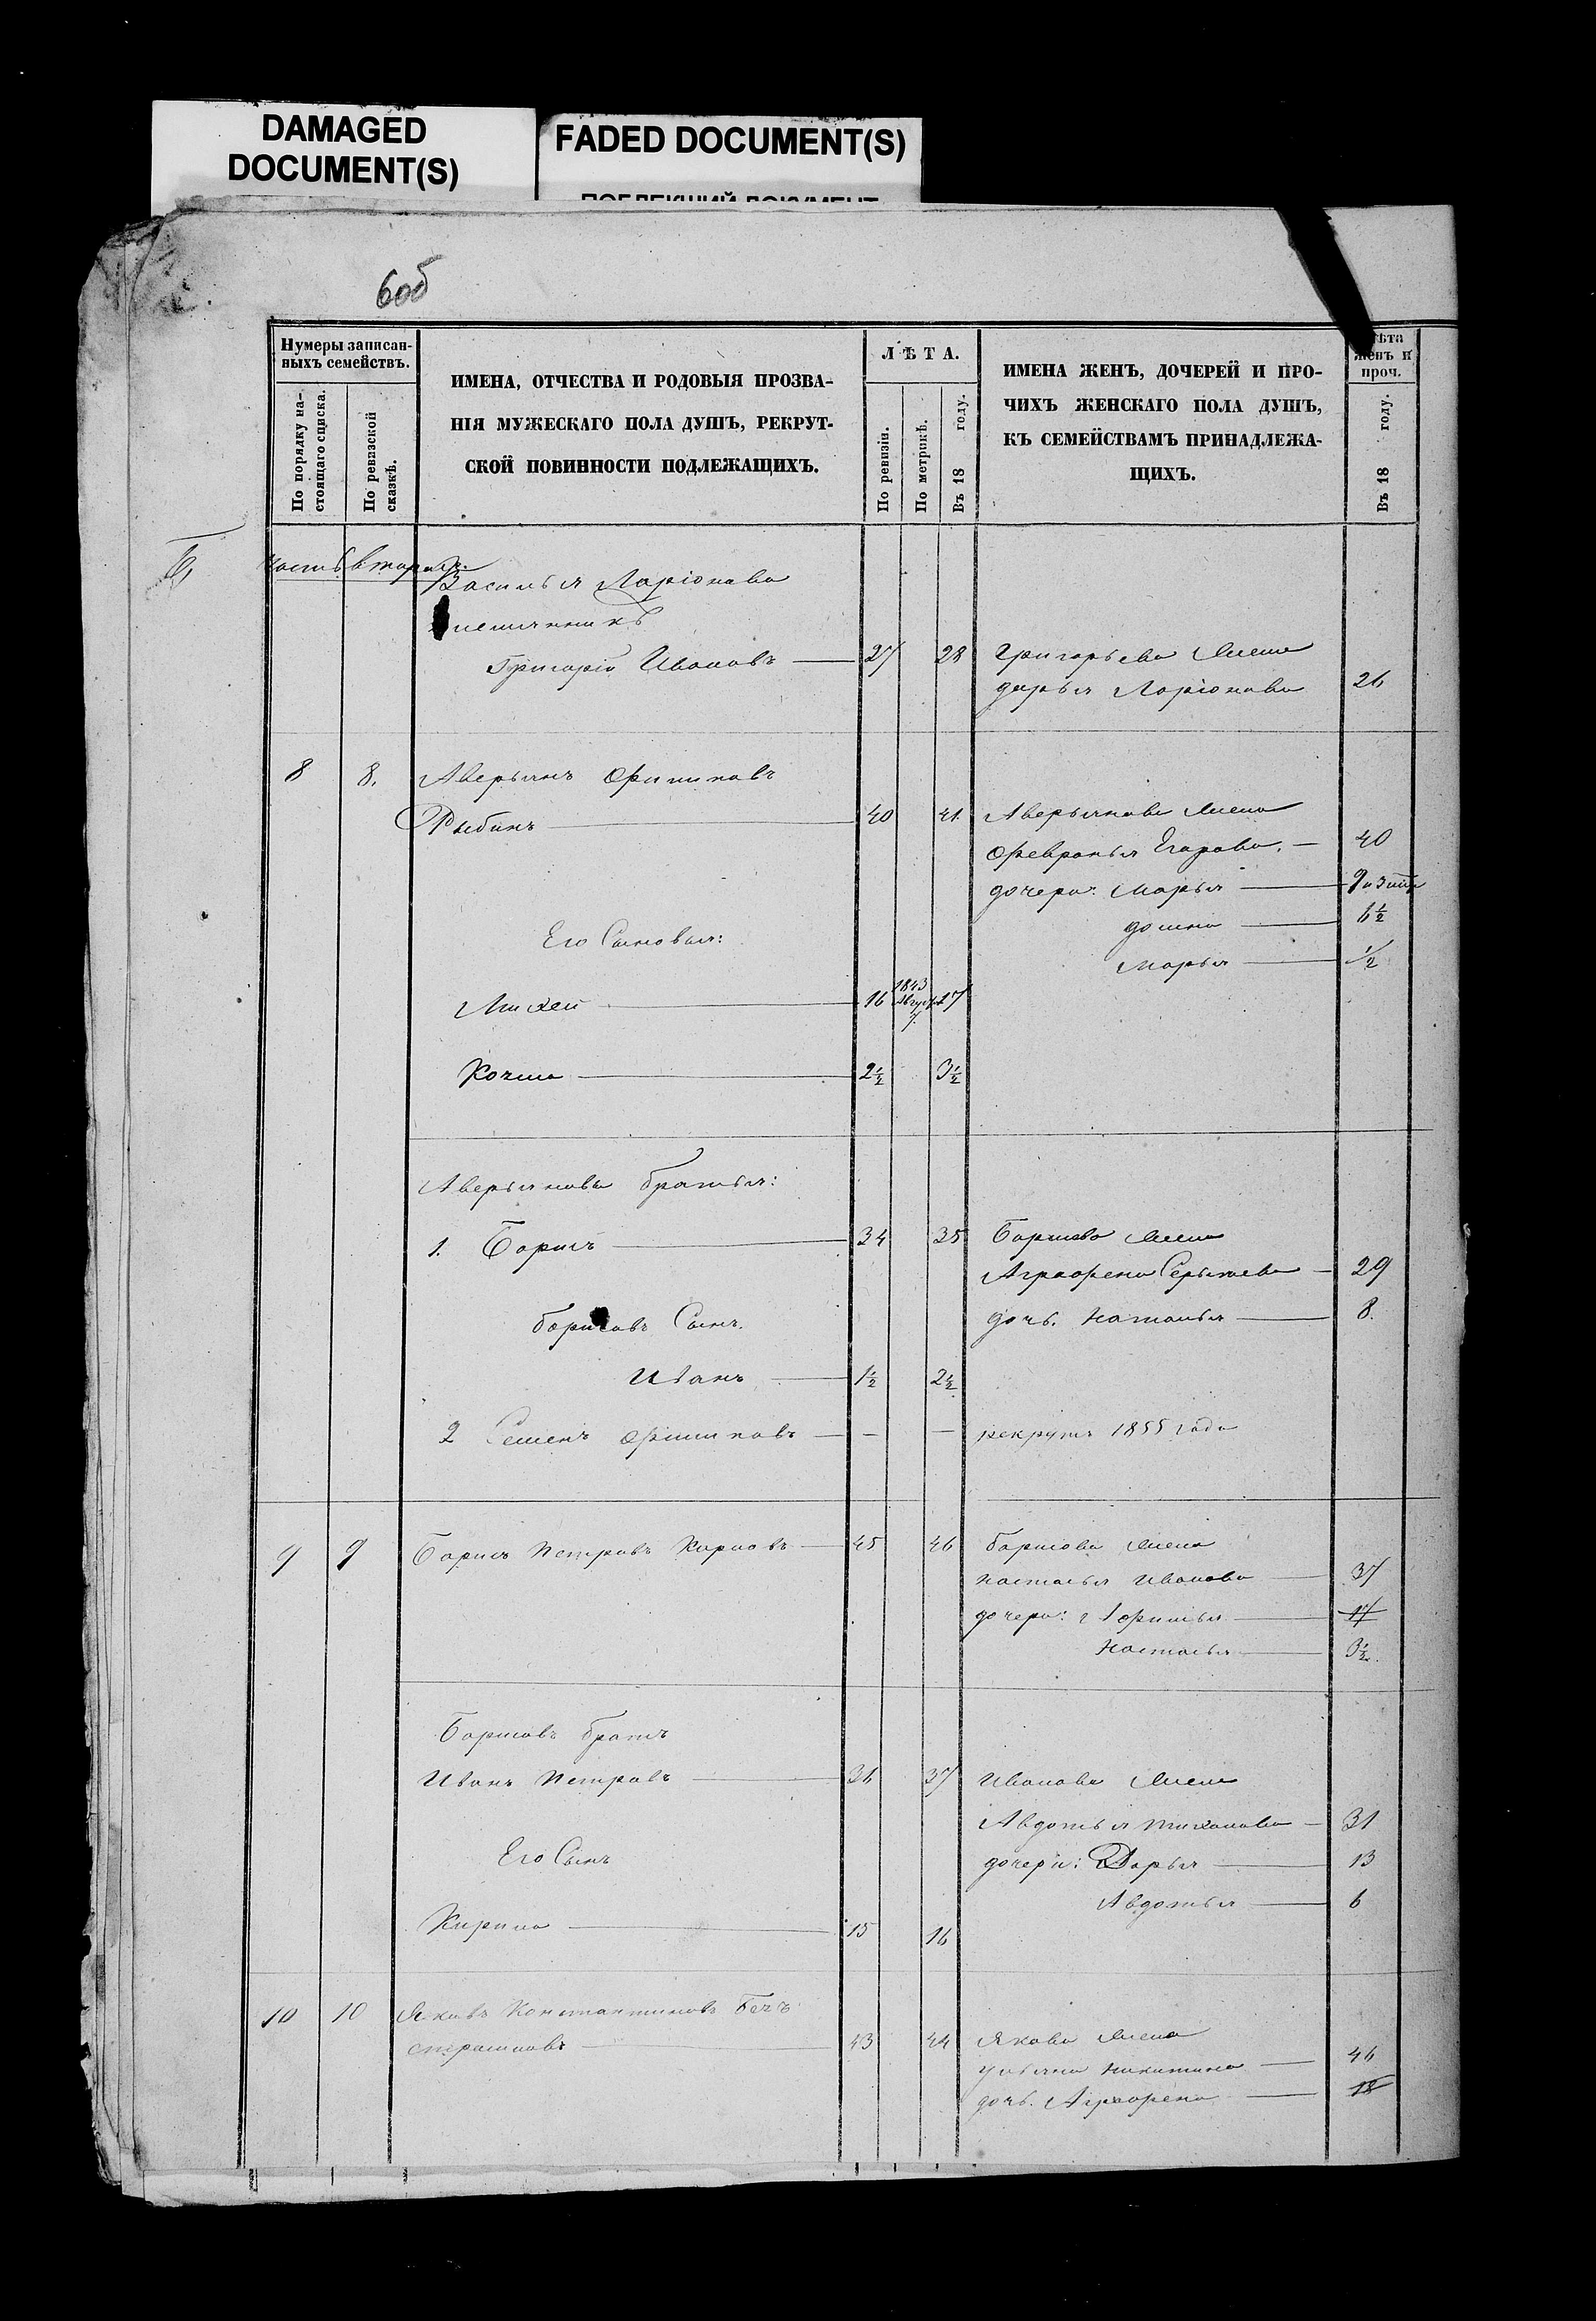 DAMAGED
DOCUMENT(S)
FADED DOCUMENT(S)
6об
Нумеры записан-
ныхъ семействъ.
По порядку на-
стоящаго списка.
По ревизской
сказкѣ.
ИМЕНА, ОТЧЕСТВА И РОДОВЫЯ ПРОЗВА-
НІЯ МУЖЕСКАГО ПОЛА ДУШЪ, РЕКРУТ-
СКОЙ ПОВИННОСТИ ПОДЛЕЖАЩИХЪ.
ЛѢТА.
По ревизіи.
По метрикѣ.
Въ 18 году.
ИМЕНА ЖЕНЪ, ДОЧЕРЕЙ И ПРО-
ЧИХЪ ЖЕНСКАГО ПОЛА ДУШЪ,
КЪ СЕМЕЙСТВАМЪ ПРИНАДЛЕЖА-
ЩИХЪ.
женъ и
проч.
Въ 18 году.
Василья Ларіонова
племянникъ
Григорій Ивановъ 27 28 Григорьева жена
дарья Ларіонова 26
8 8. Аверьянъ Филиповъ
Рыбинъ 40 41 Аверьянова жена
Февронья Егорова. 40
дочери: Марья
домна 6½
Марья ½
Его Сыновья:
Михей 16 1843 Август 7. 17
Козма 2½ 3½
Аверьяновы братья:
1. Борисъ 34 35 Борисова жена
Аграфена Сергѣева 29
дочь. Наталья 8.
борисовъ Сынъ.
Иванъ 1½ 2½
2 Семенъ Филиповъ — — рекрутъ 1855 года
9 9 Борисъ Петровъ Карповъ 45 46 борисова жена
настасья Иванова 37
дочери: 17
Настасья 3½.
Борисовъ братъ
Иванъ Петровъ 36 37 Иванова жена
Авдотья тихонова 31
дочери: Дарья 13
Авдотья 6
Его Сынъ
Кирила 15 16
10 10 Яковъ Константиновъ Безъ
страшновъ 43 44 Якова жена
ульяна Никитина 46
дочь. Аграфена 18